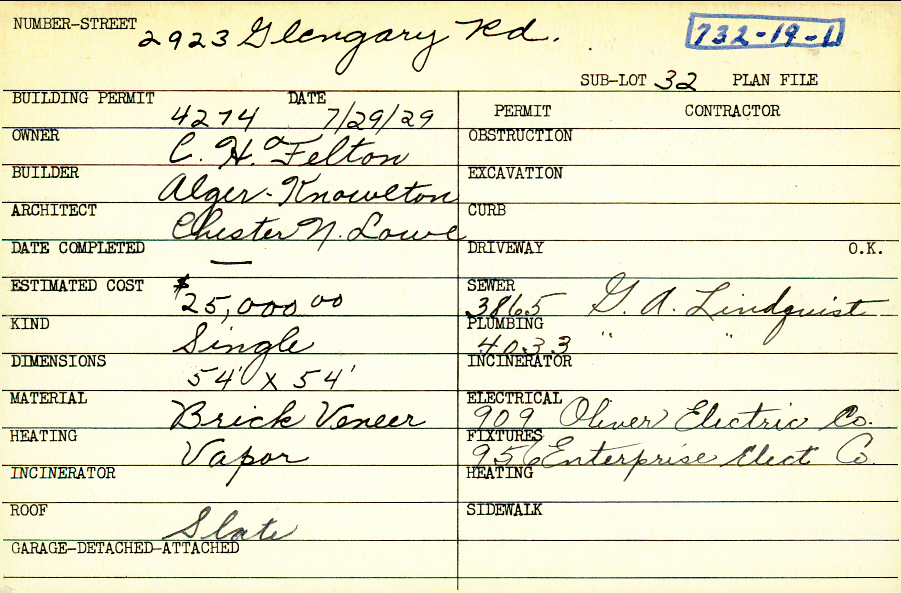 NUMBER-STREET 2923 Glengary Rd. 732-19-1
SUB-LOT 32 PLAN FILE
BUILDING PERMIT 4274 DATE 7/29/29
OWNER C. H. Felton
BUILDER Alger-Knowlton
ARCHITECT Chester N. Lowe
DATE COMPLETED —
ESTIMATED COST $25,000.00
KIND Single
DIMENSIONS 54' x 54'
MATERIAL Brick Veneer
HEATING Vapor
INCINERATOR
ROOF Slate
GARAGE-DETACHED-ATTACHED
PERMIT CONTRACTOR
OBSTRUCTION
EXCAVATION
CURB
DRIVEWAY O.K.
SEWER 3865 G. A. Lindquist
PLUMBING 4033 " "
INCINERATOR
ELECTRICAL 909 Oliver Electric Co.
FIXTURES 956 Enterprise Elect Co.
HEATING
SIDEWALK